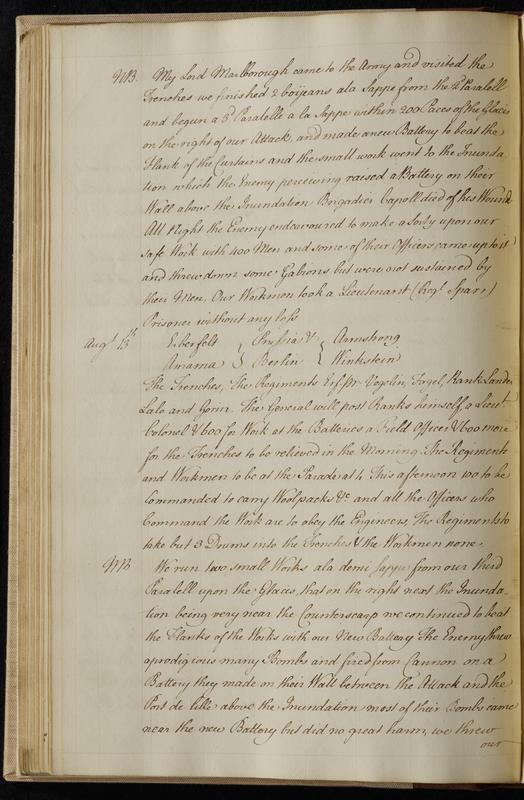 NB. My Lord Marlborough came to the Army and visited the
Trenches we finished 2 boijeans a la Sappe from the 2d Paralell
and begun a 3d Paralelle a la Sappe within 200 Paces of the Glacis
on the right of our Attack, and made a new Battery to beat the
Flank of the Curtains and the small work went to the Inunda-
tion which the Enemy perceiving raised a Battery on their
Wall above the Inundation Brigadier Capoll died of his Wound
All Night the Enemy endeavoured to make a Sorly upon our
Safe Work with 400 Men and some of their Officers came up to it
and threw down some Gabions but were not sustained by
their Men, Our Workmen took a Lieutenant (Regt. Sparr)
Prisoner without any loss
Augt. 13th Eiberfelt } Prussia &c { Armstrong
Amama } Berlin { Winkstein
The Trenches, The Regiments Vogelin, Fagel, Rank Lander
Lalo and Gorin. The General will post Ranks himself, a Lieut.
Colonel & 600 for Work at the Batteries a Field Officer & 600 more
for the Trenches to be relieved in the Morning The Regiments
and Workmen to be at the Parade at 4 This afternoon 100 to be
Commanded to carry Woolpacks &c. and all the Officers who
Command the Work are to obey the Engineers The Regiments to
take but 3 Drums into the Trenches & the Workmen none.
NB We run two small Works a la demi Sappe from our third
Paralell upon the Glaces that on the right next the Inunda-
tion being very near the Counterscarp we continued to beat
the Flanks of the Works with our New Battery The Enemy threw
a prodigious many Bombs and fired from Cannon on a
Battery they made on their Wall between the Attack and the
Port de Lille above the Inundation most of their Bombs came
near the new Battery but did no great harm, we threw
our